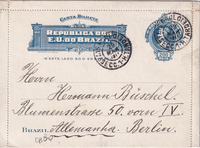 CARTA BILHETE
REPUBLICA DOS
E.U. DO BRAZIL
N'ESTE LADO SÓ O ENDEREÇO
Herrn
Hermann Büschel.
Blumenstrasse 50. vorn IV.
BRAZIL Allemanha. Berlin.